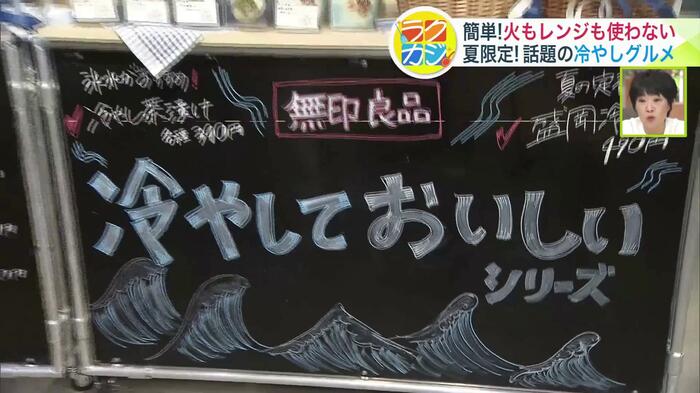 ラクカジ!
簡単!火もレンジも使わない
夏限定!話題の冷やしグルメ
冷やし茶づけ
各種 390円
無印良品
夏の定
盛岡冷
490円
冷やしておいしい
シリーズ